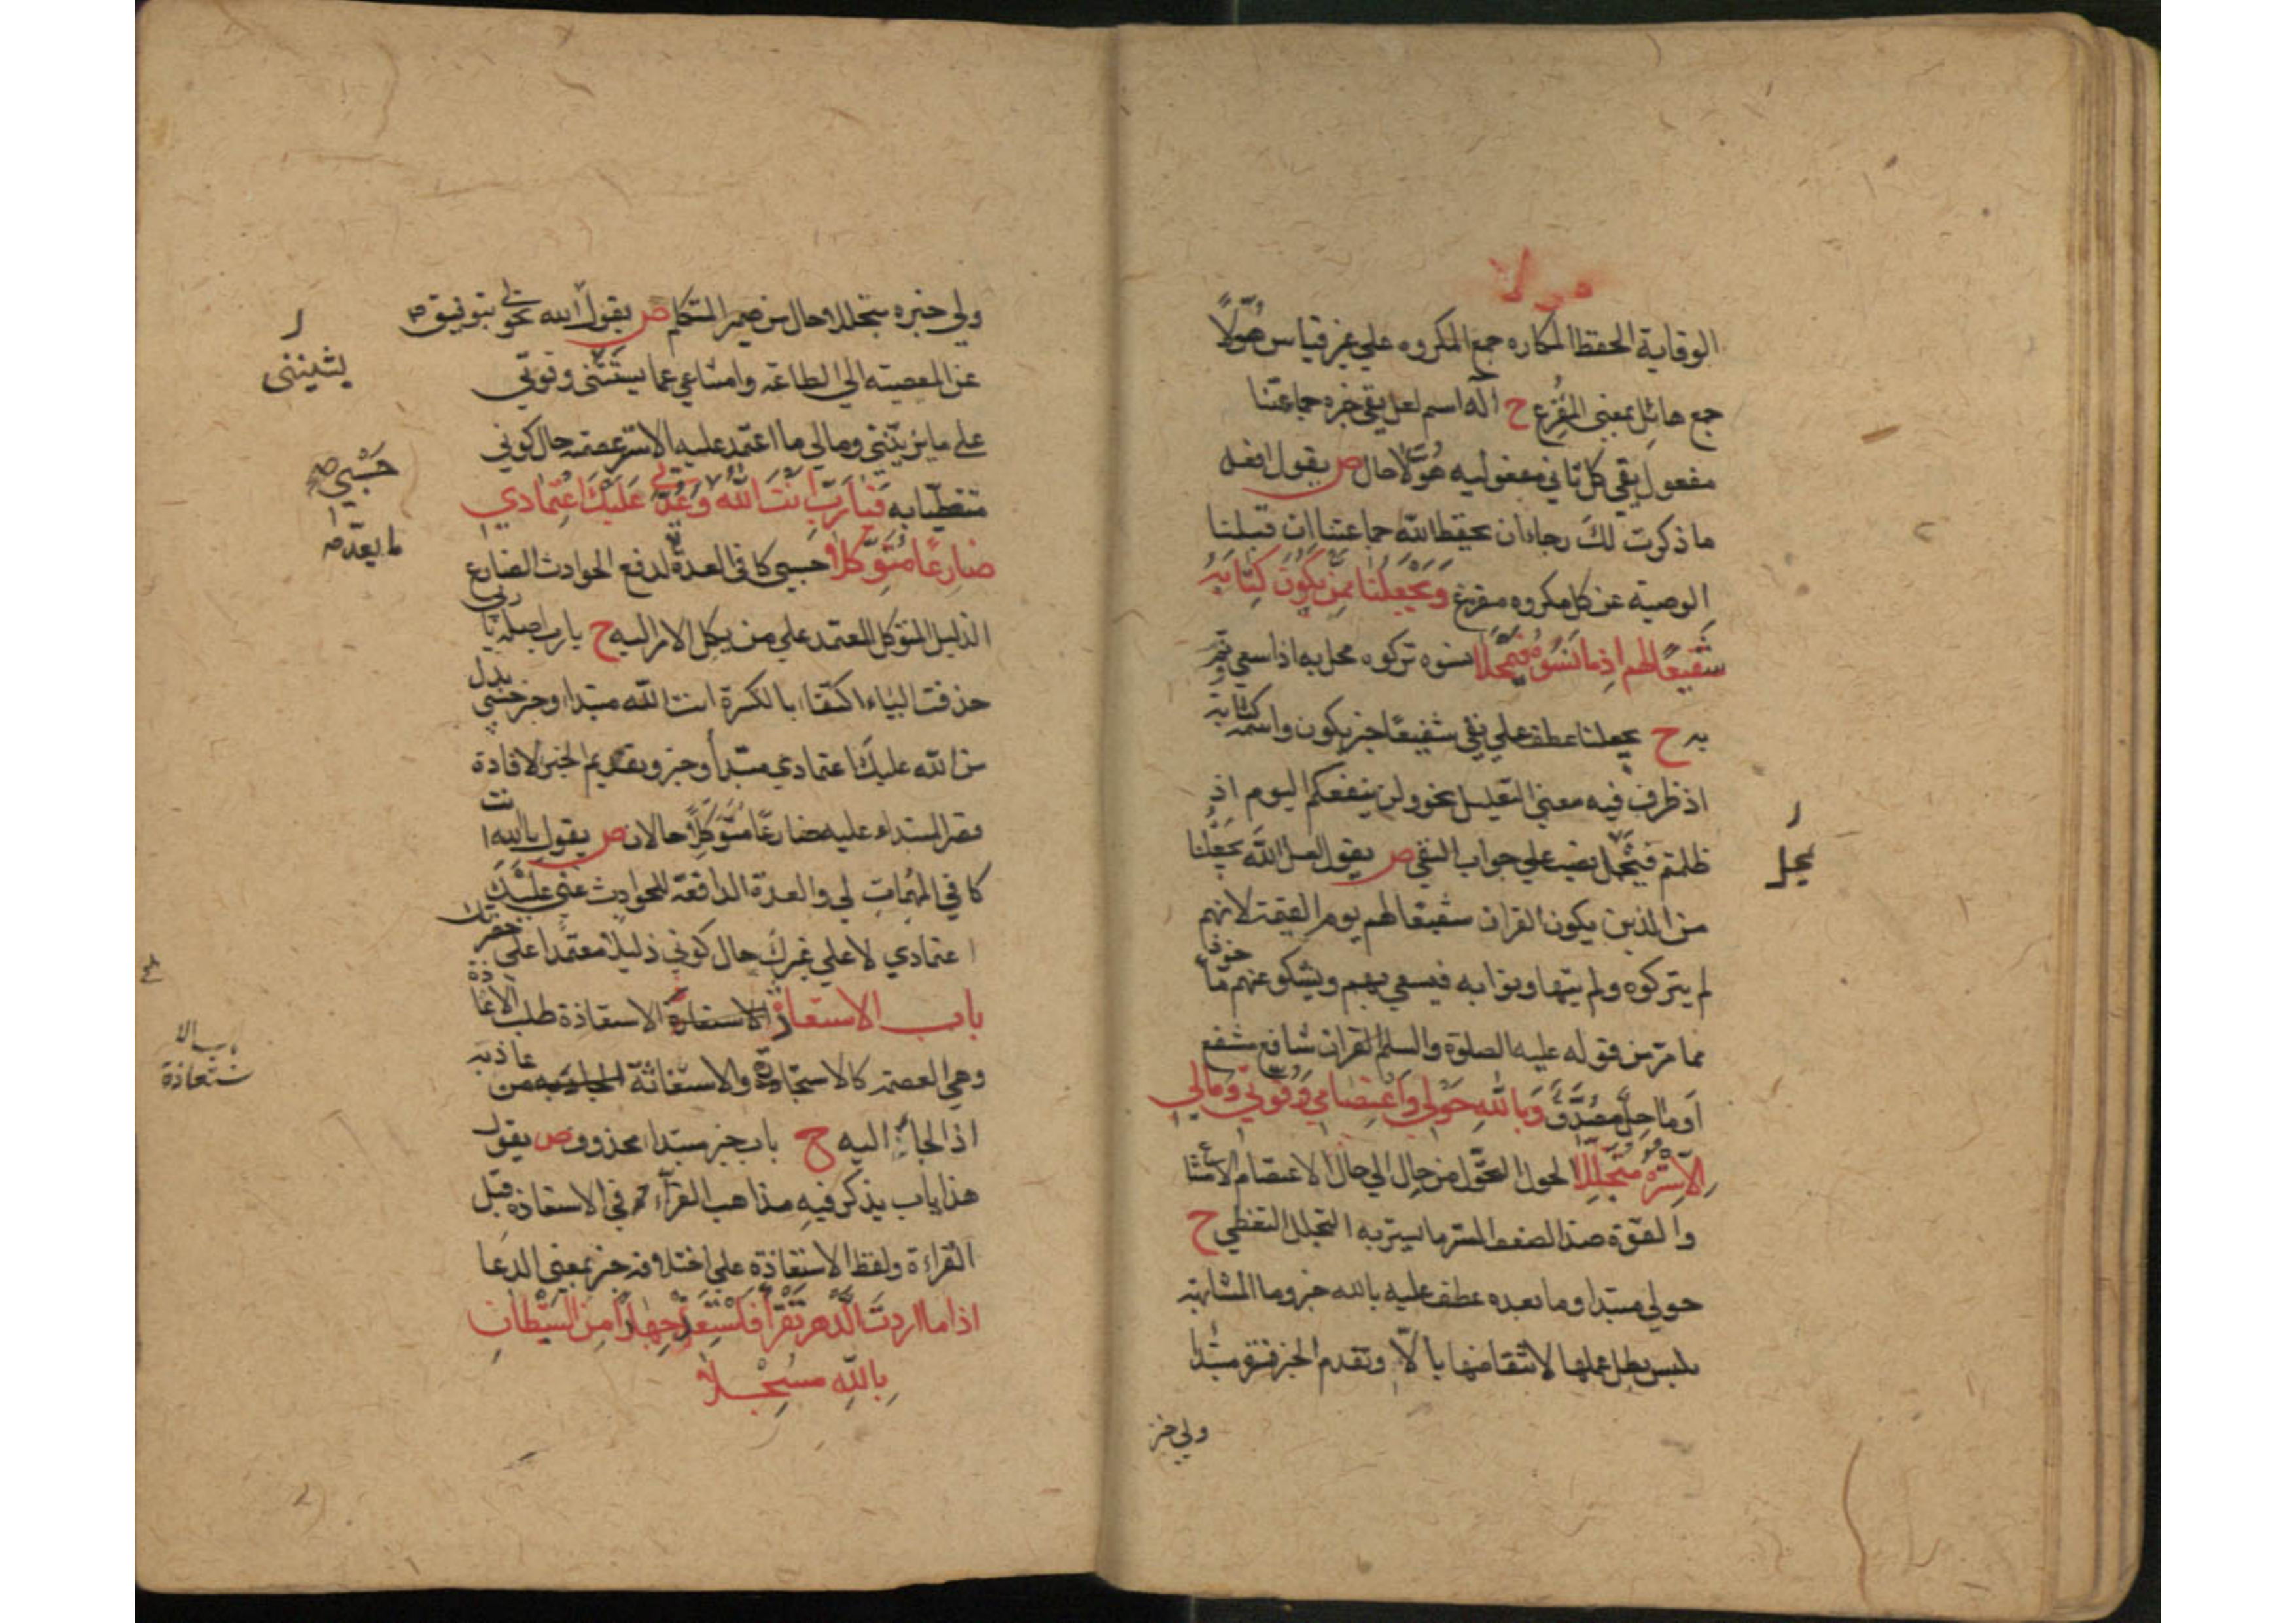 الوقاية الحفظ المكاره جمع المكروه علي غير قياس هُوَّلًا
جمع هائل بمعني المُفزع ح الله اسم لعل يقي خبره جماعتنا
مفعول يقي كل ثاني مفعوليه هُوَّلًا حال ص يقول افعل
ما ذكرت لك رجاء ان يحفظ الله جماعتنا ان قبلنا
الوصية عن كل مكروه مفزع وَيَجْعَلُنَا مِمَّنْ يَكُونُ كِتَابُهُ
شَفِيعًا لهم اِذ ما نَسُوهُ فَيَمْحَلَا نسوه تركوه محل به اذا سعي
به ح يجعلنا عطف علي يقي شفيعًا خبر يكون واسمه كتابه
اذ ظرف فيه معني التعليل نحو ولن ينفعكم اليوم اذ
ظلمتم فيمحل نصب علي جواب النفي ص يقول لعل الله يجعلنا
من الذين يكون القران شفيعا لهم يوم القيمة لانهم
لم يتركوه ولم يتهاونوا به فيسعي بهم ويشكو عنهم
مما مر من قوله عليه الصلوة والسلم القران شافع مشفع
اَو ماحِلٌ مُصَدَّق وَبِاللهِ حَوْلِي وَاعْتِصَامِي وَقُوَّتِي وَمَالِي
اِلَّا سِتْرُهُ مُتَجَلِّلَا الحول التحول من حال الي حال الاعتصام الامتناع
والقوة ضد الضعف الستر ما يستر به التجلل التغطي ح
حولي مبتدا وما بعده عطف عليه بالله خبر وما المشابهة
بليس بطل عملها لانتقاضها بالّا وتقدم الخبر فستره مبتدا
ولي خبر
يحل
ولي خبره متجللا حال من ضمير المتكلم ص يقول الله بتوفيق
عن المعصية الي الطاعة وامتناعي عما يشينني وقوتي
علي ما يزينني ومالي ما اعتمد عليه الا ستر عصمته حال كوني
متغطيا به فَيَا رَبِّ اَنْتَ اللهُ حَسْبِي وَعُدَّتِي عَلَيْكَ اعْتِمَادِي
ضَارِعًا مُتَوَكِّلَا حسبي كافي العدة لدفع الحوادث الضارع
الذليل المتوكل المعتمد علي من يكل الامر اليه ح يا رب اصله يا ربي
حذفت الياء اكتفاء بالكسرة انت الله مبتدا وخبر حسبي بدل
من الله عليك اعتمادي مبتدأ وخبر وتقديم الخبر لافادة
قصر المبتداء عليه ضارعًا متوكِّلًا حالان ص يقول يا الله انت
كافي المهمات لي والعدة الدافعة للحوادث عني عليك
اعتمادي لا علي غيرك حال كوني ذليلا معتمدا علي
باب الاستعاذة الاستعاذة طلب الاعاذة
وهي العصمة كالاستجارة والاستغاثة من عاذ به
اذا لجاء اليه ح باب خبر مبتداء محذوف ص يقول
هذا باب يذكر فيه مذاهب القرآء في الاستعاذة قبل
القراءة ولفظ الاستعاذة علي اختلافه خبر بمعني الدعا
اذا ما اردت الدَّهر تَقْرَأُ فَاسْتَعِذْ جِهَارًا مِنَ الشَّيْطَانِ
بِاللهِ مُسْجَلَا
يشينني
حَسْبِي
ما بعده
باب الا
ستعاذة